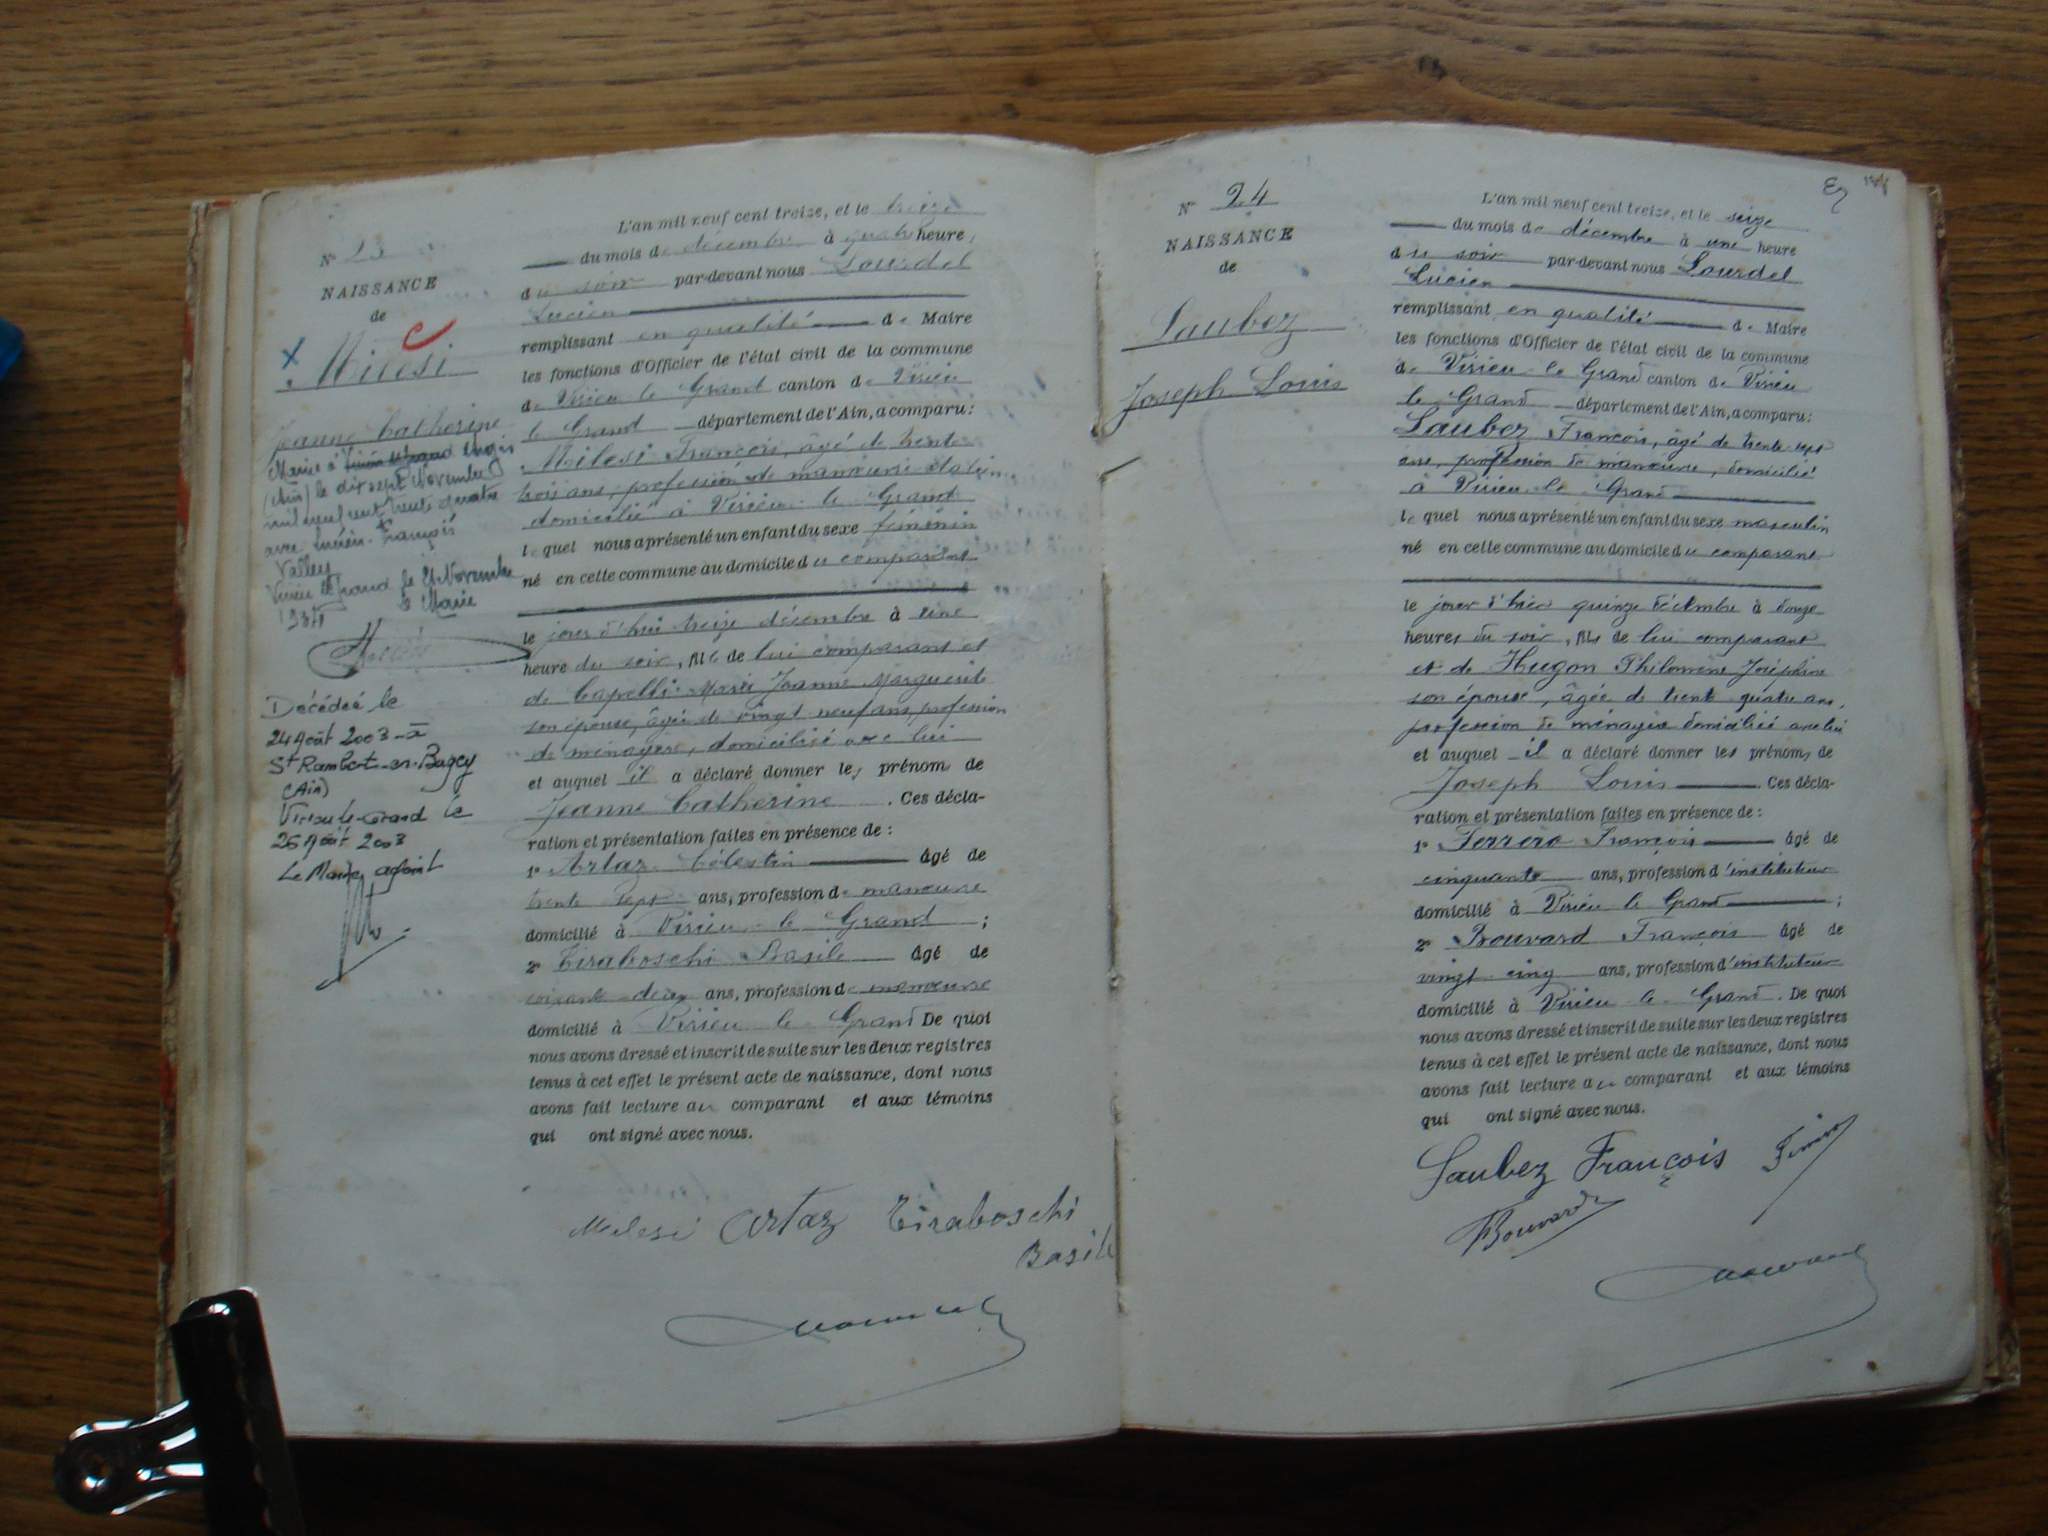 N° 23
NAISSANCE
de
Milesi
Jeanne Catherine
Mariée à
(Ain) le dix sept Novembre
mil neuf cent trente quatre
avec Lucien François
Vallet
Virieu le Grand le 21 Novembre
1934 le Maire
Décédée le
24 Août 2003 à
St Rambert-en-Bugey
(Ain)
Virieu-le-Grand le
26 Août 2003
Le Maire adjoint
L'an mil neuf cent treize, et le treize
du mois de décembre à quatre heures
du soir par-devant nous Lourdel
Lucien
remplissant en qualité de Maire
les fonctions d'Officier de l'état civil de la commune
de Virieu le Grand canton de Virieu
le Grand département de l'Ain, a comparu:
Milesi François, âgé de trente
trois ans, profession de manœuvre
domicilié à Virieu le Grand
lequel nous a présenté un enfant du sexe féminin
né en cette commune au domicile du comparant
le jour d'hui treize décembre à une
heure du soir, fille de lui comparant et
de Capelli Marie Jeanne Marguerite
son épouse, âgée de vingt neuf ans, profession
de ménagère, domiciliée avec lui
et auquel il a déclaré donner les prénoms de
Jeanne Catherine. Ces décla-
ration et présentation faites en présence de:
1° Artaz Célestin âgé de
trente sept ans, profession de manœuvre
domicilié à Virieu le Grand;
2° Tiraboschi Basile âgé de
soixante deux ans, profession de manœuvre
domicilié à Virieu le Grand De quoi
nous avons dressé et inscrit de suite sur les deux registres
tenus à cet effet le présent acte de naissance, dont nous
avons fait lecture au comparant et aux témoins
qui ont signé avec nous.
Milesi Artaz Tiraboschi
Basile
N° 24
NAISSANCE
de
Laubez
Joseph Louis
L'an mil neuf cent treize, et le seize
du mois de décembre à une heure
du soir par-devant nous Lourdel
Lucien
remplissant en qualité de Maire
les fonctions d'Officier de l'état civil de la commune
de Virieu le Grand canton de Virieu
le Grand département de l'Ain, a comparu:
Laubez François, âgé de trente sept
ans, profession de manœuvre, domicilié
à Virieu le Grand
lequel nous a présenté un enfant du sexe masculin
né en cette commune au domicile du comparant
le jour d'hier quinze décembre à douze
heures du soir, fils de lui comparant
et de Hugon Philomène Joséphine
son épouse, âgée de trente quatre ans,
profession de ménagère domiciliée avec lui
et auquel il a déclaré donner les prénoms de
Joseph Louis. Ces décla-
ration et présentation faites en présence de:
1° Ferrero François âgé de
cinquante ans, profession d'instituteur
domicilié à Virieu le Grand;
2° Bouvard François âgé de
vingt cinq ans, profession d'instituteur
domicilié à Virieu le Grand. De quoi
nous avons dressé et inscrit de suite sur les deux registres
tenus à cet effet le présent acte de naissance, dont nous
avons fait lecture au comparant et aux témoins
qui ont signé avec nous.
Laubez François
Bouvard